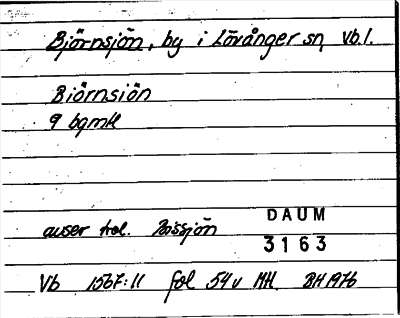 Björnsjön, by i Lövånger sn, Vb.l.
Biörnsiön
9 bgmk
avser trol. Bissjön
DAUM
3163
Vb 1567:11 fol 54v MH BH 1976